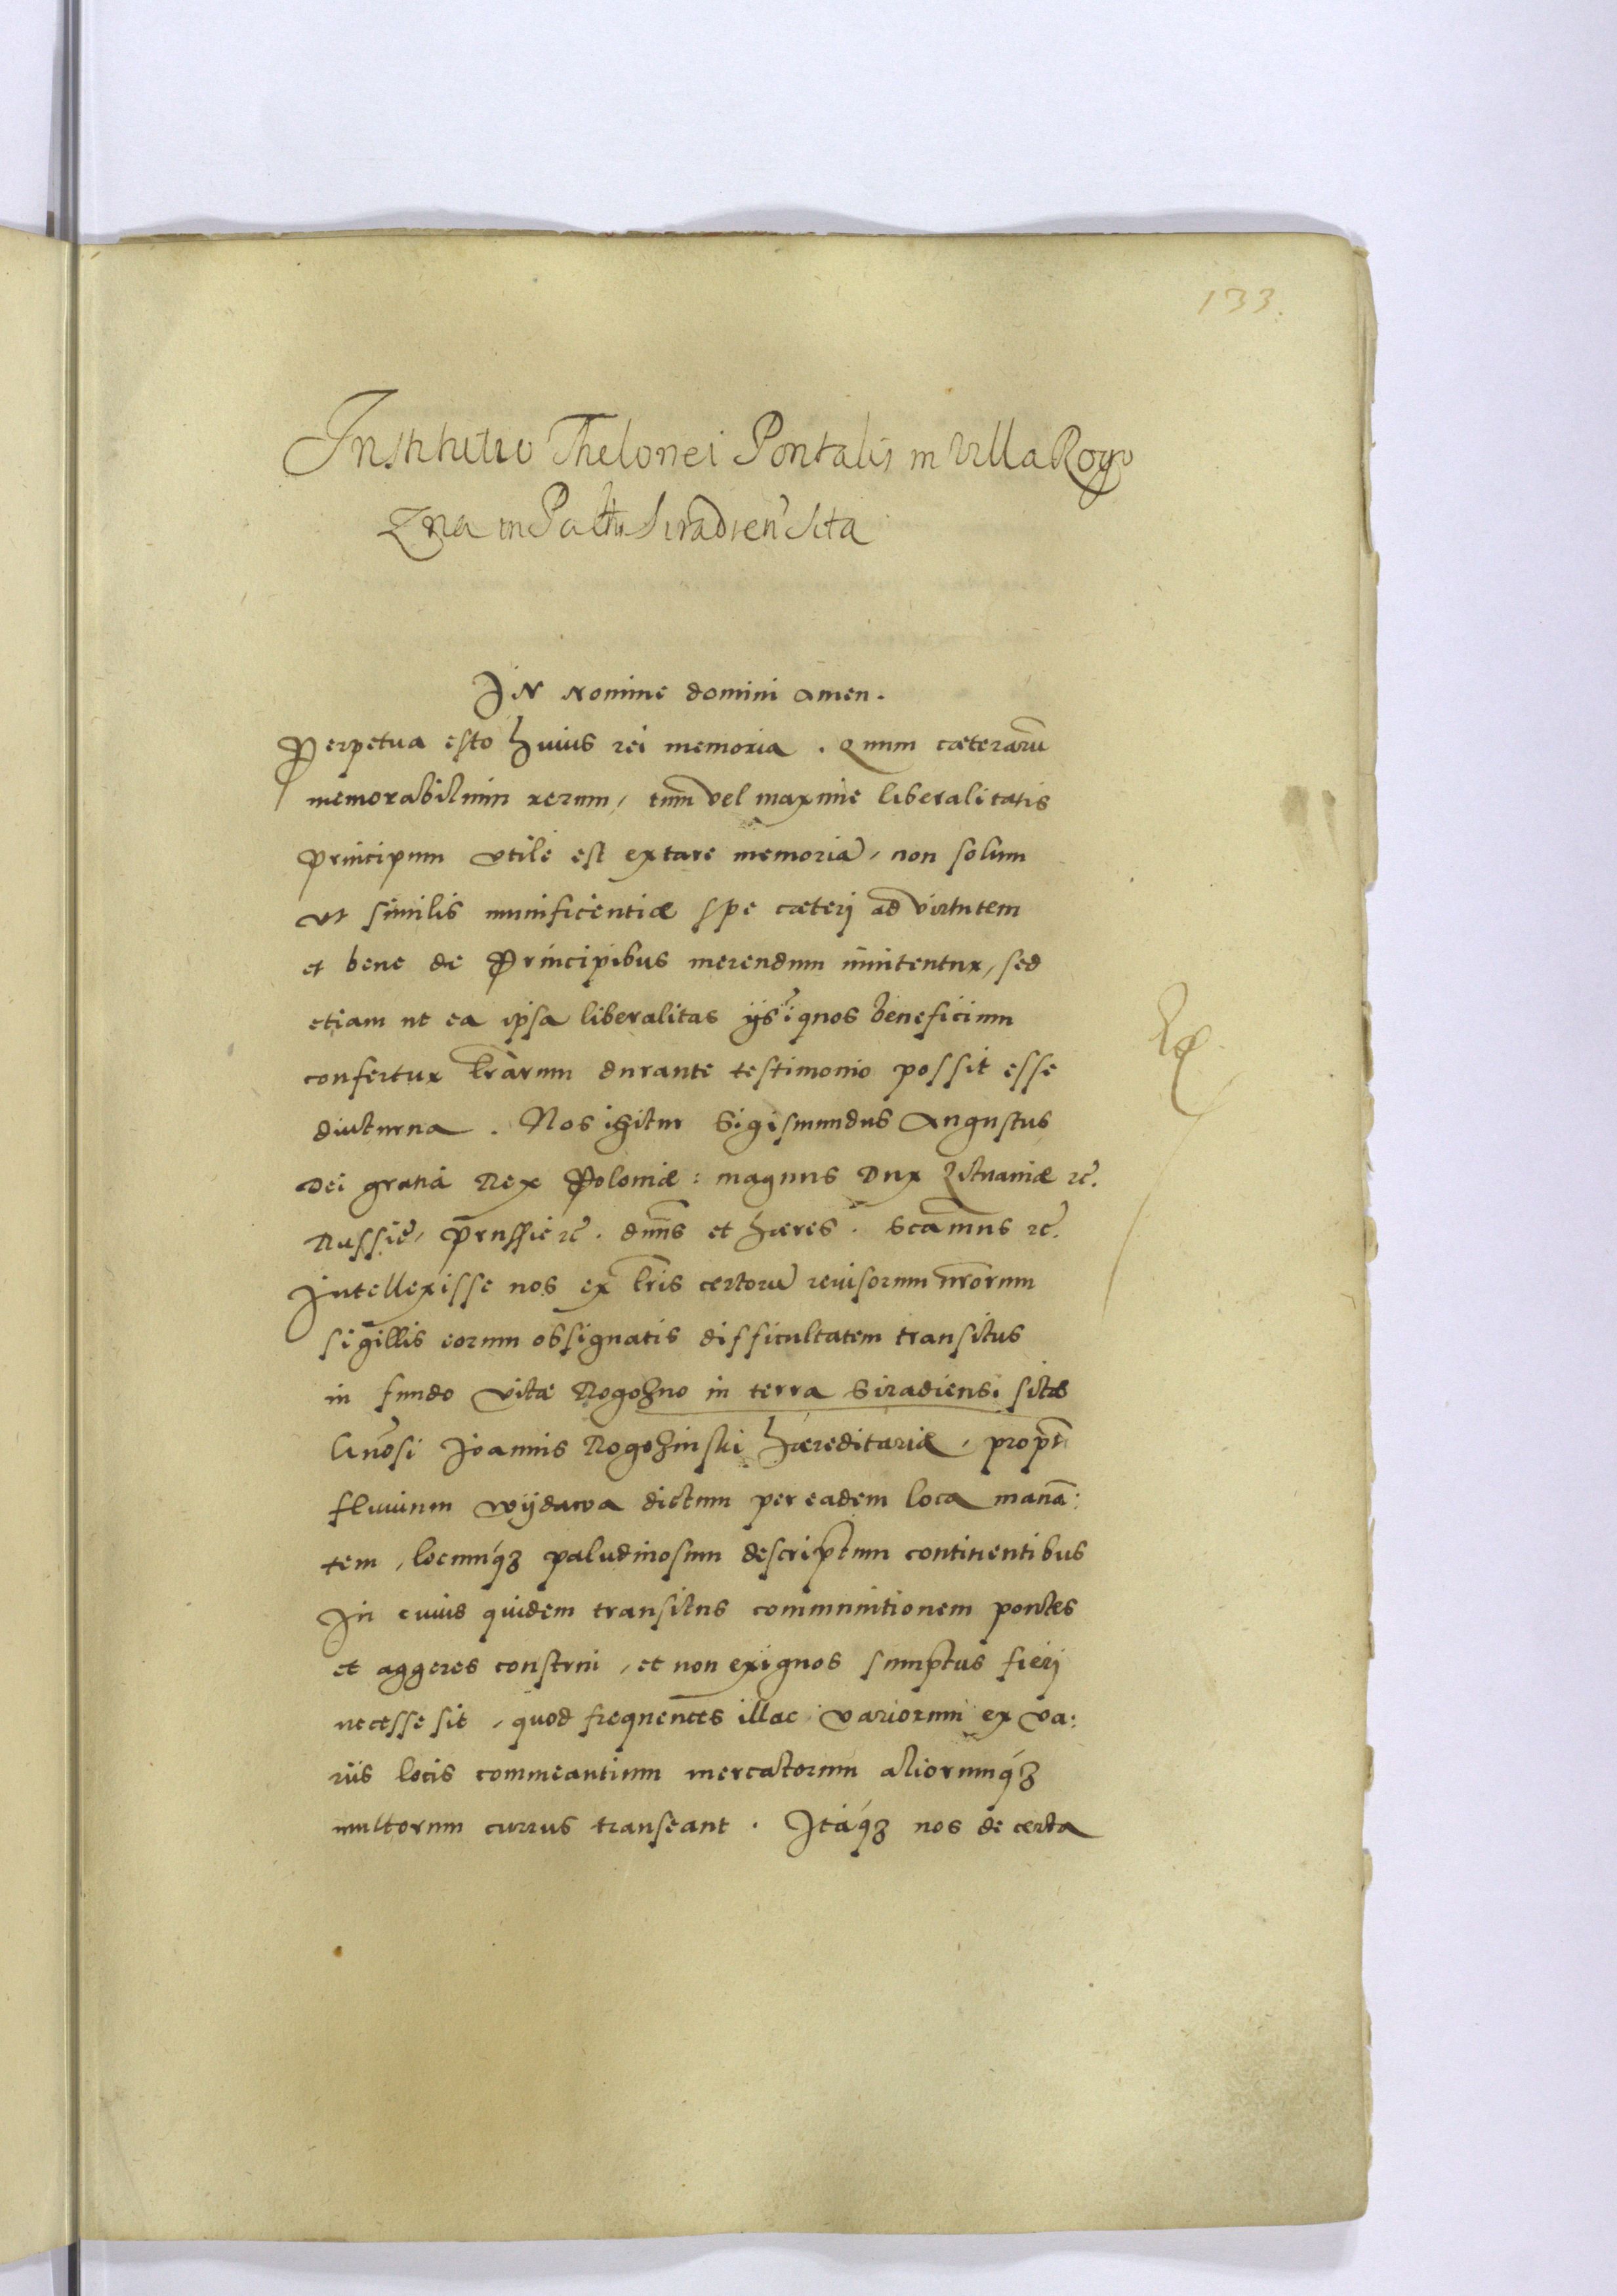 133.
Institutio Thelonei Pontalis in Villa Rogo
Zna in Pałtu Siradien̄ Sita
IN Nomine domini amen.
Perpetua esto huius rei memoria. Quum cæterarũ
memorabilium rerum, tum̄ vel maxime liberalitatis
Principum vtile est extare memoriã, non solum
vt similis munificentiæ spe cæteri ad virtutem
et bene de Principibus merendum inuitentur, sed
etiam ut ea ipsa liberalitas ijs ĩ quos beneficium
confertur lr̄arum durante testimonio possit esse
diuturna. Nos igitur Sigismundus Augustus
Dei gratia Rex Poloniæ: magnus Dux Lituaniæ zc̃.
Russie, Prussie zc̃. dnn̄s et hæres. Sc̄amus zc̃.
Intellexisse nos ex lr̄is certorũ reuisorum nr̄orum
sigillis eorum obsignatis difficultatem transitus
in fundo villæ Rogozno in terra Siradiensi sitæ
Gn̄osi Joannis Rogozinski hæreditariæ, propt̃
fluuium wÿdawa dictum per eadem loca manã:
tem, locumq́ꝫ paludinosum descriptum continentibus
In cuius quidem transitus communitionem pontes
et aggeres construi, et non exiguos sumptus fieri
necesse sit, quod frequentes illac variorum ex va:
rijs locis commeantium mercatorum aliorumq́ꝫ
multorum currus transeant. Itaq́ꝫ nos de certa